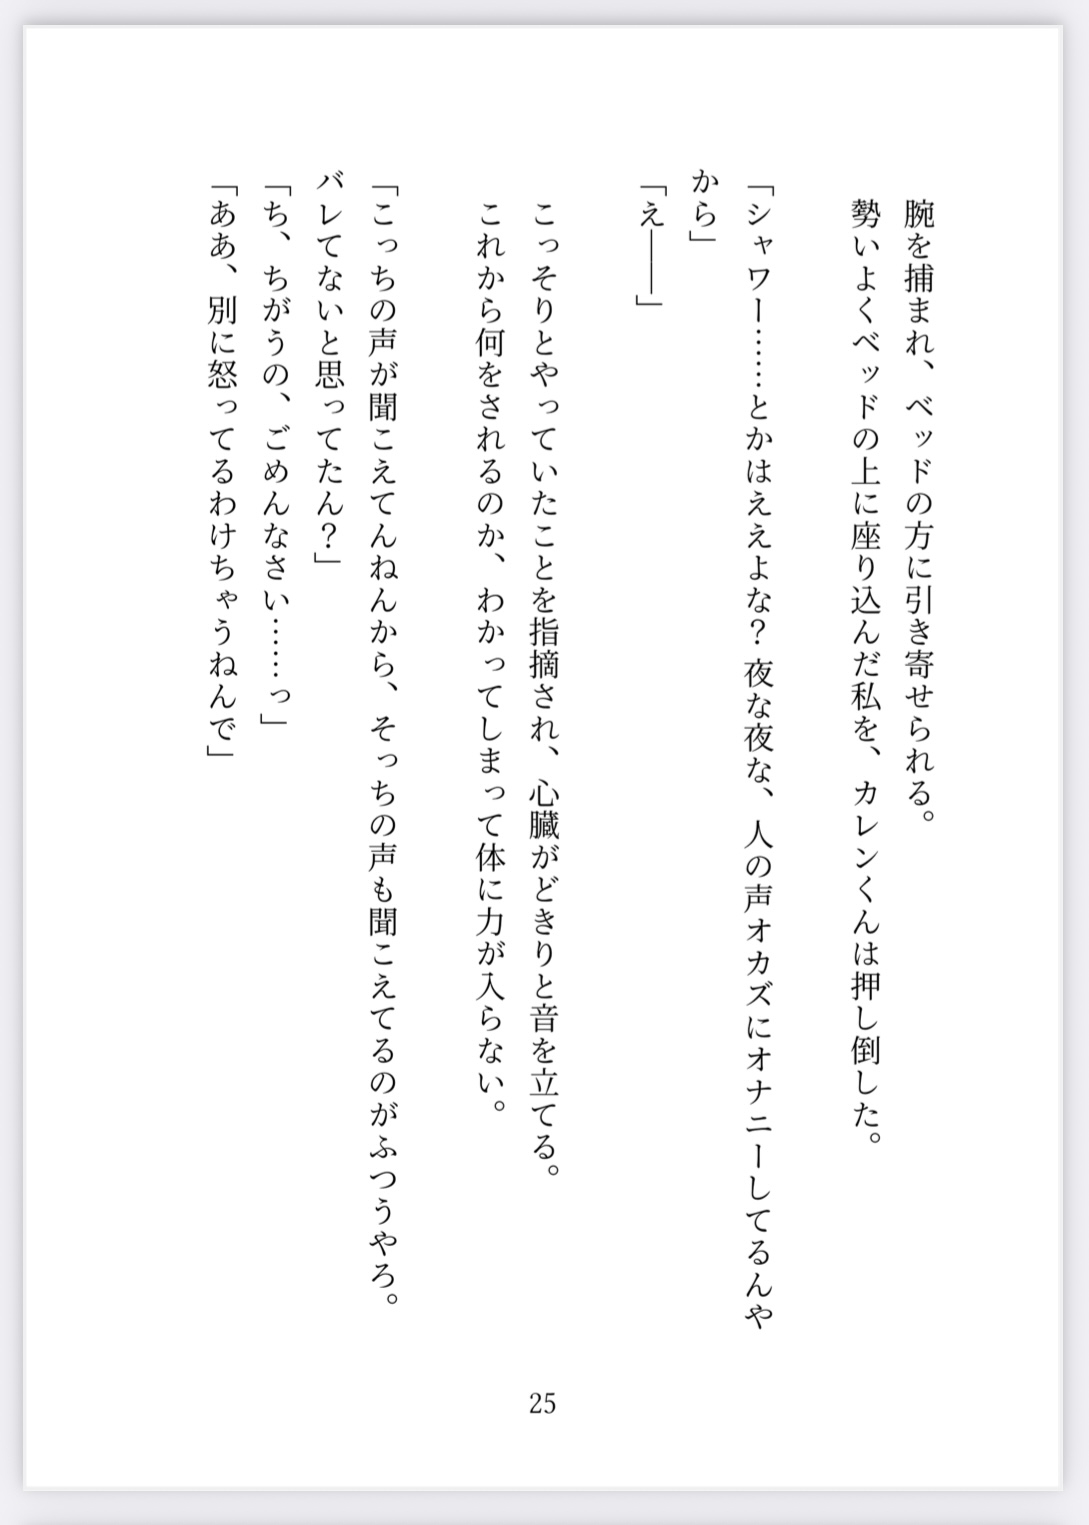 腕を捕まれ、ベッドの方に引き寄せられる。
勢いよくベッドの上に座り込んだ私を、カレンくんは押し倒した。
「シャワー……とかはええよな？ 夜な夜な、人の声オカズにオナニーしてるんや
から」
「え――」
こっそりとやっていたことを指摘され、心臓がどきりと音を立てる。
これから何をされるのか、わかってしまって体に力が入らない。
「こっちの声が聞こえてんねんから、そっちの声も聞こえてるのがふつうやろ。
バレてないと思ってたん？」
「ち、ちがうの、ごめんなさい……っ」
「ああ、別に怒ってるわけちゃうねんで」
25